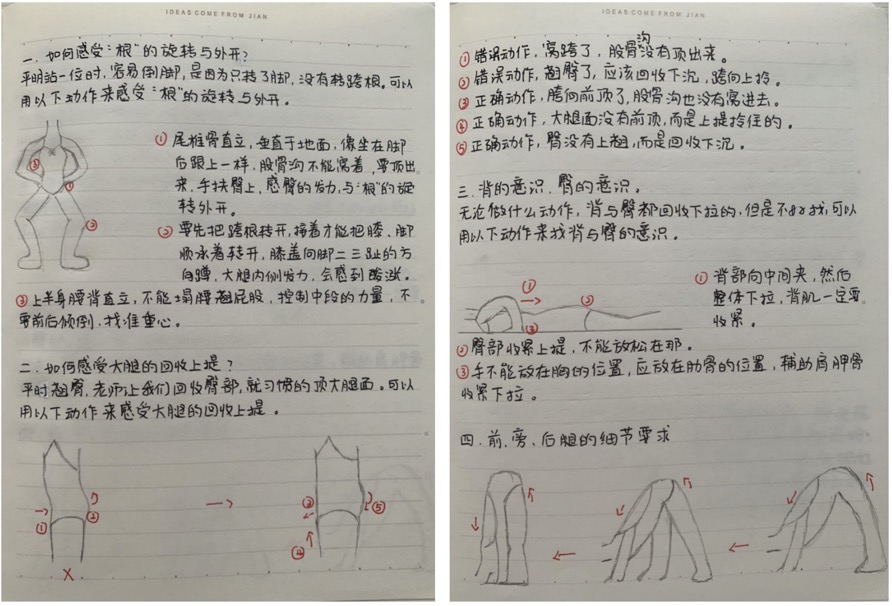 IDEAS COME FROM JIAN
一. 如何感受"根"的旋转与外开?
平时站一位时,容易倒脚,是因为只转了脚,没有转跨根。可以
用以下动作来感受"根"的旋转与外开。
① 尾椎骨直立,垂直于地面,像坐在脚
后跟上一样,股骨沟不能窝着,要顶出
来,手扶臀上,感臀的发力,与"根"的旋
转外开。
② 要先把跨根转开,接着才能把膝、脚
顺承着转开,膝盖向脚二三趾的方
向蹲,大腿内侧发力,会感到酸涨。
③ 上半身腰背直立,不能塌腰翘屁股,控制中段的力量,不
要前后倾倒,找准重心。
③
①
②
二. 如何感受大腿的回收上提?
平时翘臀,老师让我们回收臀部,就习惯的顶大腿面。可以
用以下动作来感受大腿的回收上提。
① ② ③ ④ ⑤
X
IDEAS COME FROM JIAN
① 错误动作,窝跨了,股骨沟没有顶出来。
② 错误动作,翘臀了,应该回收下沉,跨向上拎。
③ 正确动作,胯向前顶了,股骨沟也没有窝进去。
④ 正确动作,大腿面没有前顶,而是上提拎住的。
⑤ 正确动作,臀没有上翘,而是回收下沉。
三. 背的意识、臀的意识。
无论做什么动作,背与臀都回收下拉的,但是不好找,可以
用以下动作来找背与臀的意识。
① ② ③
① 背部向中间夹,然后
整体下拉,背肌一定要
收紧。
② 臀部收紧上提,不能放松在那。
③ 手不能放在胸的位置,应放在肋骨的位置,辅助肩胛骨
收紧下拉。
四. 前、旁、后腿的细节要求